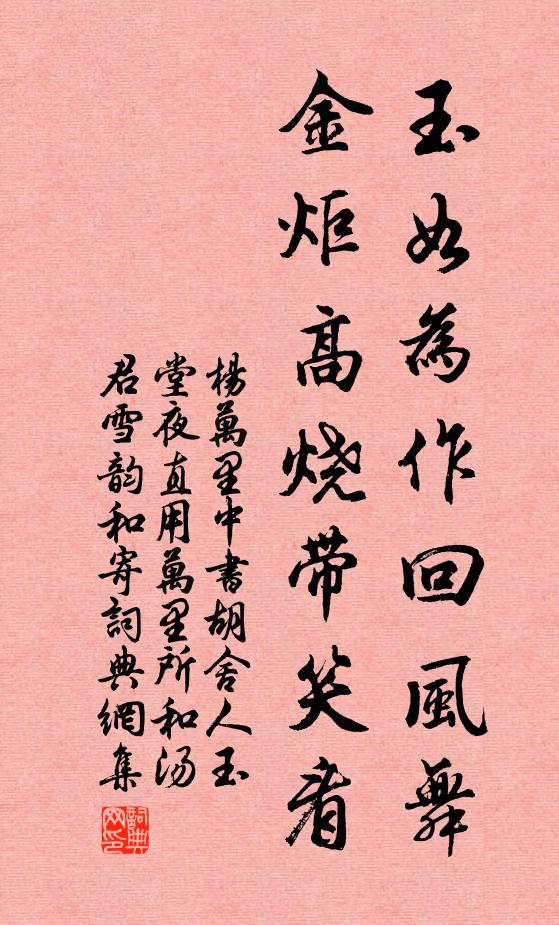 玉如為作回風舞
金炬高烧帶笑看
楊萬里中書胡舍人玉
堂夜直用萬里所和湯
君雪韵和寄詞典網集
詞典
网印